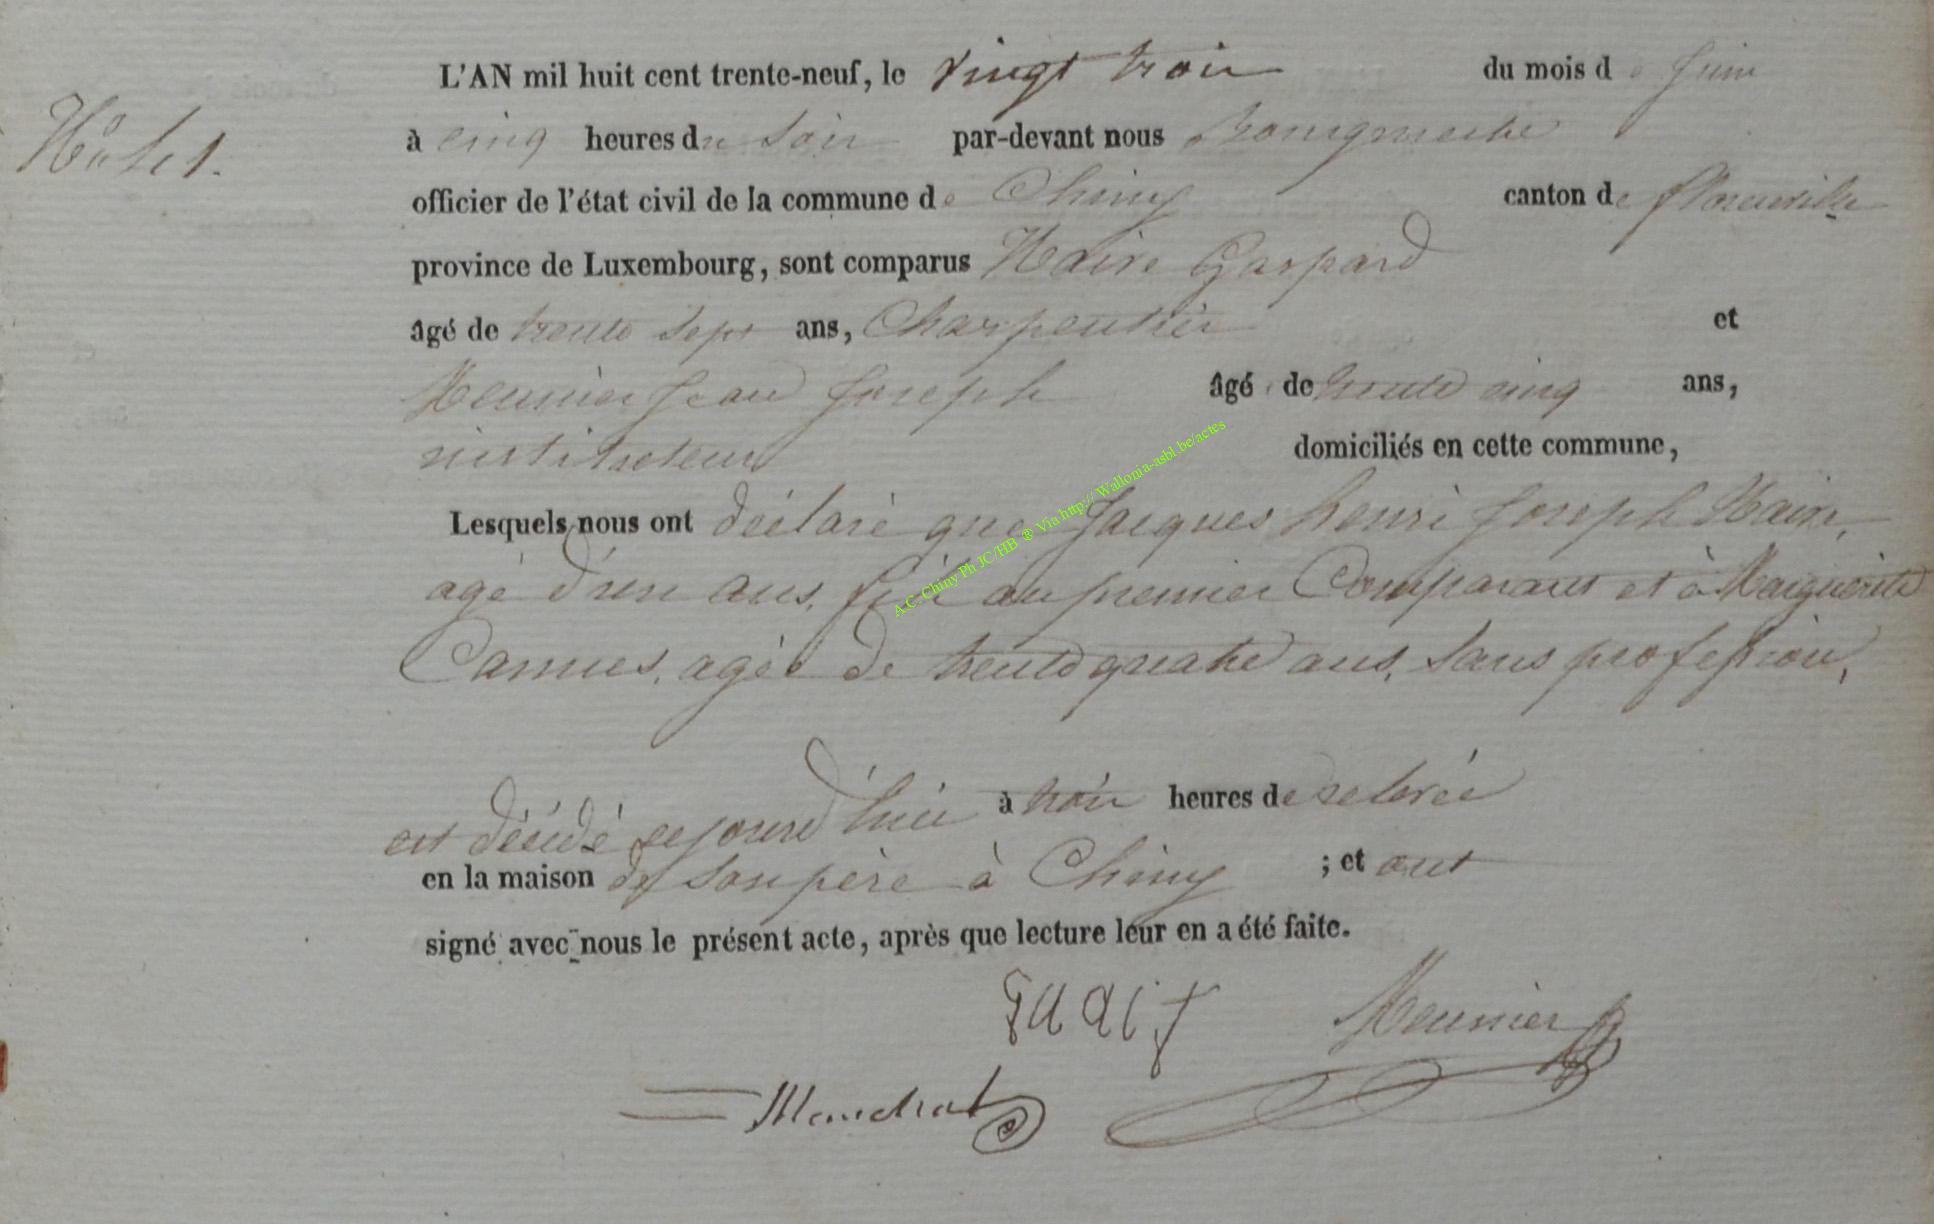 L'AN mil huit cent trente-neuf, le vingt trois du mois de Juin
à cinq heures du soir par-devant nous Bourgmestre
officier de l'état civil de la commune de Chiny canton de florenville
province de Luxembourg, sont comparus Gaspard
âgé de trente sept ans, Charpentier et
Meunier Jean Joseph âgé de trente cinq ans,
instituteur domiciliés en cette commune,
Lesquels nous ont déclaré que Jacques henri Joseph
agé d'un ans, fils au premier Comparant et à Marguerite
Camus, agée de trente quatre ans, sans profession,
est décédé cejourd'hui à trois heures de relevée
en la maison de son père à Chiny ; et ont
signé avec nous le présent acte, après que lecture leur en a été faite.
Meunier
A.C. Chiny Ph JC/HB ® Via http:// Wallonia-asbl.be/actes